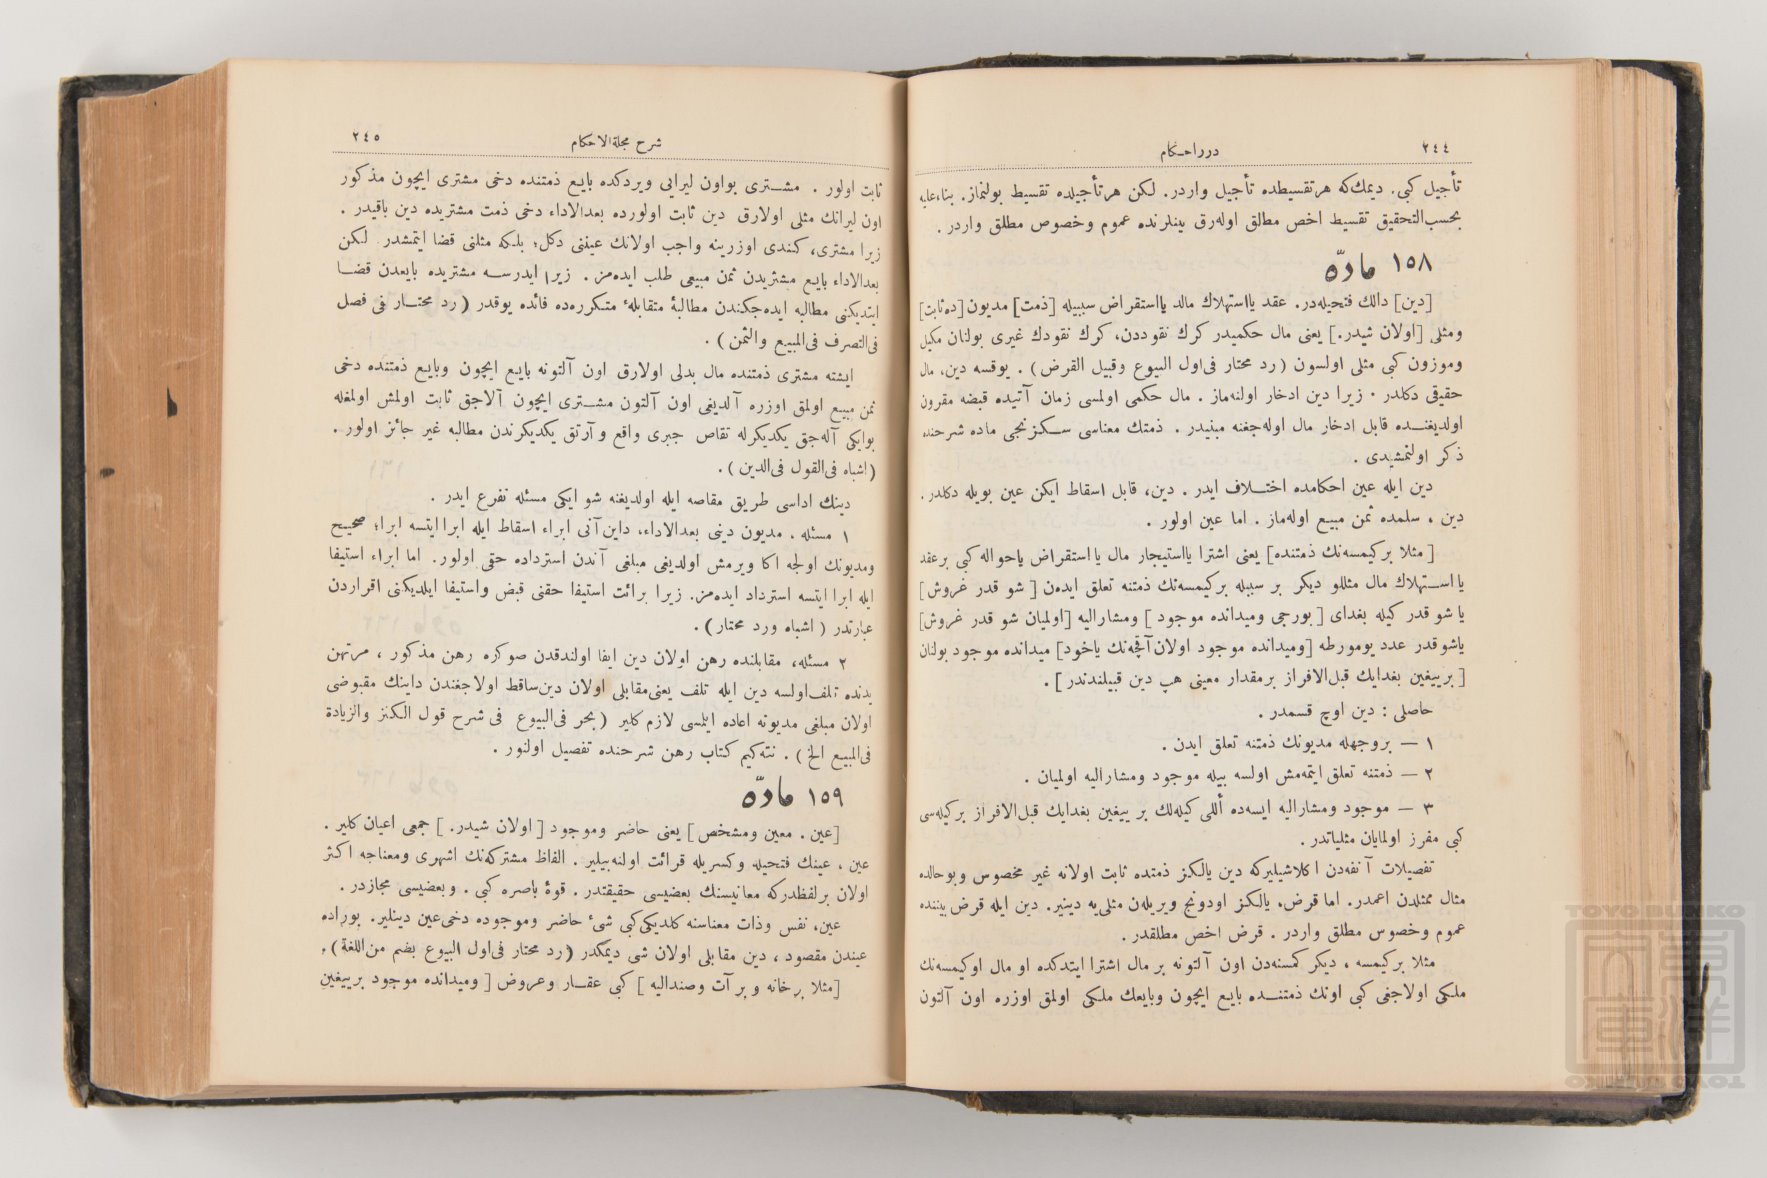 ٢٤٤
درر احكام
تأجيل كبى. ديمك‌كه هر تقسيطده تأجيل واردر. لكن هر تأجيلده تقسيط بولنماز. بناءعليه
بحسب‌التحقيق تقسيط اخص مطلق اوله‌رق بينلرنده عموم وخصوص مطلق واردر.
١٥٨ مادّه
[دين] دالك فتحيله‌در. عقد يااستهلاك مالد يااستقراض سببيله [ذمت] مديون [ده ثابت]
ومثلى [اولان شيدر.] يعنى مال حكميدر كرك نقوددن، كرك نقودك غيرى بولنان مكيل
وموزون كبى مثلى اولسون (رد محتار فى‌اول البيوع وقبيل القرض). يوقسه دين، مال
حقيقى دكلدر. زيرا دين ادخار اولنه‌ماز. مال حكمى اولمسى زمان آتيده قبضه مقرون
اولديغنده قابل ادخار مال اوله‌جغنه مبنيدر. ذمتك معناسى سكزنجى ماده شرحنده
ذكر اولنمشيدى.
دين ايله عين احكامده اختلاف ايدر. دين، قابل اسقاط ايكن عين بويله دكلدر.
دين، سلمده ثمن مبيع اوله‌ماز. اما عين اولور.
[مثلا بر كيمسه‌نك ذمتنده] يعنى اشترا يااستيجار مال يا استقراض ياحواله كبى بر عقد
يا استهلاك مال مثللو ديكر بر سببله بر كيمسه‌نك ذمتنه تعلق ايدن [شو قدر غروش]
يا شو قدر كيله بغداى [بورجى وميدانده موجود] ومشاراليه [اولميان شو قدر غروش]
ياشو قدر عدد يومورطه [وميدانده موجود اولان آقچه‌نك ياخود] ميدانده موجود بولنان
[بر ييغين بغدايك قبل‌الافراز بر مقدار معينى هپ دين قبيلندندر].
حاصلى: دين اوچ قسمدر.
١ — بروجهله مديونك ذمتنه تعلق ايدن.
٢ — ذمتنه تعلق ايتمه‌مش اولسه بيله موجود ومشاراليه اولميان.
٣ — موجود ومشاراليه ايسه‌ده أللى كيله‌لك بر ييغين بغدايك قبل‌الافراز بر كيله‌سى
كبى مفرز اولمايان مثلياتدر.
تفصيلات آنفه‌دن اكلاشيليركه دين يالكز ذمتده ثابت اولانه غير مخصوص وبوحالده
مثال ممثلدن اعمدر. اما قرض، يالكز اودونج ويريلن مثلى‌يه دينير. دين ايله قرض بيننده
عموم وخصوص مطلق واردر. قرض اخص مطلقدر.
مثلا بركيمسه، ديكر كمسنه‌دن اون آلتونه بر مال اشترا ايتدكده او مال اوكيمسه‌نك
ملكى اولاجغى كبى اونك ذمتنده بايع ايچون وبايعك ملكى اولمق اوزره اون آلتون
٢٤٥
شرح مجلةالاحكام
ثابت اولور. مشترى بواون ليرايى ويردكده بايع ذمتنده دخى مشترى ايچون مذكور
اون ليرانك مثلى اولارق دين ثابت اولورده بعدالاداء دخى ذمت مشتريده دين باقيدر.
زيرا مشترى، كندى اوزرينه واجب اولانك عيننى دكل؛ بلكه مثلنى قضا ايتمشدر. لكن
بعدالاداء بايع مشتريدن ثمن مبيعى طلب ايده‌مز. زيرا ايدرسه مشتريده بايعدن قضا
ايتديكنى مطالبه ايده‌جكندن مطالبۀ متقابلۀ متكرره‌ده فائده يوقدر (رد محتار فى فصل
فى‌التصرف فى‌المبيع والثمن).
ايشته مشترى ذمتنده مال بدلى اولارق اون آلتونه بايع ايچون وبايع ذمتنده دخى
ثمن مبيع اولمق اوزره آلديغى اون آلتون مشترى ايچون آلاجق ثابت اولمش اولمغله
بوايكى آله‌جق يكديكرله تقاص جبرى واقع وآرتق يكديكرندن مطالبه غير جائز اولور.
(اشباه فى‌القول فى‌الدين).
دينك اداسى طريق مقاصه ايله اولديغنه شو ايكى مسئله تفرع ايدر.
١ مسئله. مديون دينى بعدالاداء، داين آنى ابراء اسقاط ايله ابرا ايتسه ابرا؛ صحيح
ومديونك اولجه اكا ويرمش اولديغى مبلغى آندن استرداده حقى اولور. اما ابراء استيفا
ايله ابرا ايتسه استرداد ايده‌مز. زيرا برائت استيفا حقنى قبض واستيفا ايلديكنى اقراردن
عبارتدر (اشباه ورد محتار).
٢ مسئله، مقابلنده رهن اولان دين ايفا اولندقدن صوكره رهن مذكور، مرتهن
يدنده تلف‌اولسه دين ايله تلف يعنى‌مقابلى اولان دين‌ساقط اولاجغندن داينك مقبوضى
اولان مبلغى مديونه اعاده ايلمسى لازم كلير (بحر فى‌البيوع فى شرح قول الكنز والزيادة
فى‌المبيع الخ). نته‌كيم كتاب رهن شرحنده تفصيل اولنور.
١٥٩ مادّه
[عين. معين ومشخص] يعنى حاضر وموجود [اولان شيدر.] جمعى اعيان كلير.
عين، عينك فتحيله وكسريله قرائت اولنه‌بيلير. الفاظ مشتركه‌نك اشهرى ومعناجه اكثر
اولان برلفظدركه معانيسنك بعضيسى حقيقتدر. قوۀ باصره كبى. وبعضيسى مجازدر.
عين، نفس وذات معناسنه كلديكى‌كبى شىء حاضر وموجوده دخى‌عين دينلير. بوراده
عيندن مقصود، دين مقابلى اولان شى ديمكدر (رد محتار فى‌اول البيوع بضم من‌اللغة).
[مثلا بر خانه و بر آت وصنداليه] كبى عقار وعروض [وميدانده موجود بر ييغين
TOYO BUNKO